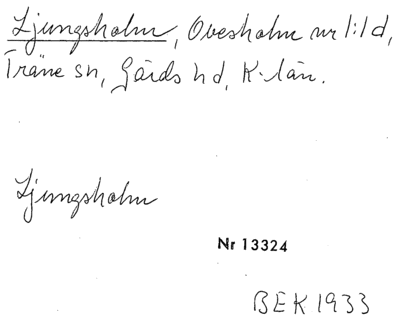 Ljungsholm, Ovesholm nr 1:1 d,
Träne sn, Gärds hd, K-län.
Ljungsholm
Nr 13324
BEK 1933